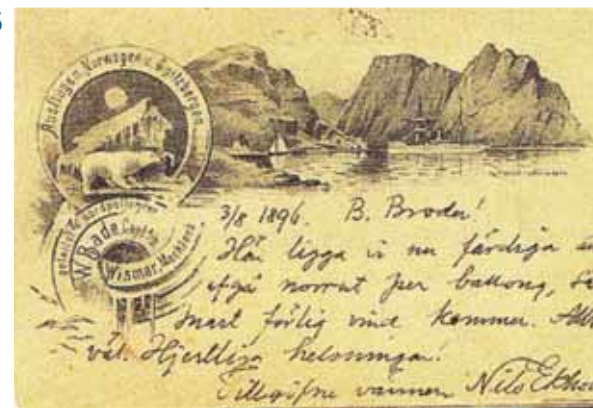 Ausflügen Norwegen u. Spitzbergen
W. Bade, Capt.
Wismar, Mecklenb
3/8 1896. B. Broder!
Här ligga vi nu färdiga
afgå norrut per ballong, så
snart förlig vind kommer. All
väl. Hjertliga helsningar!
Tillgifne vännen Nils Ekho